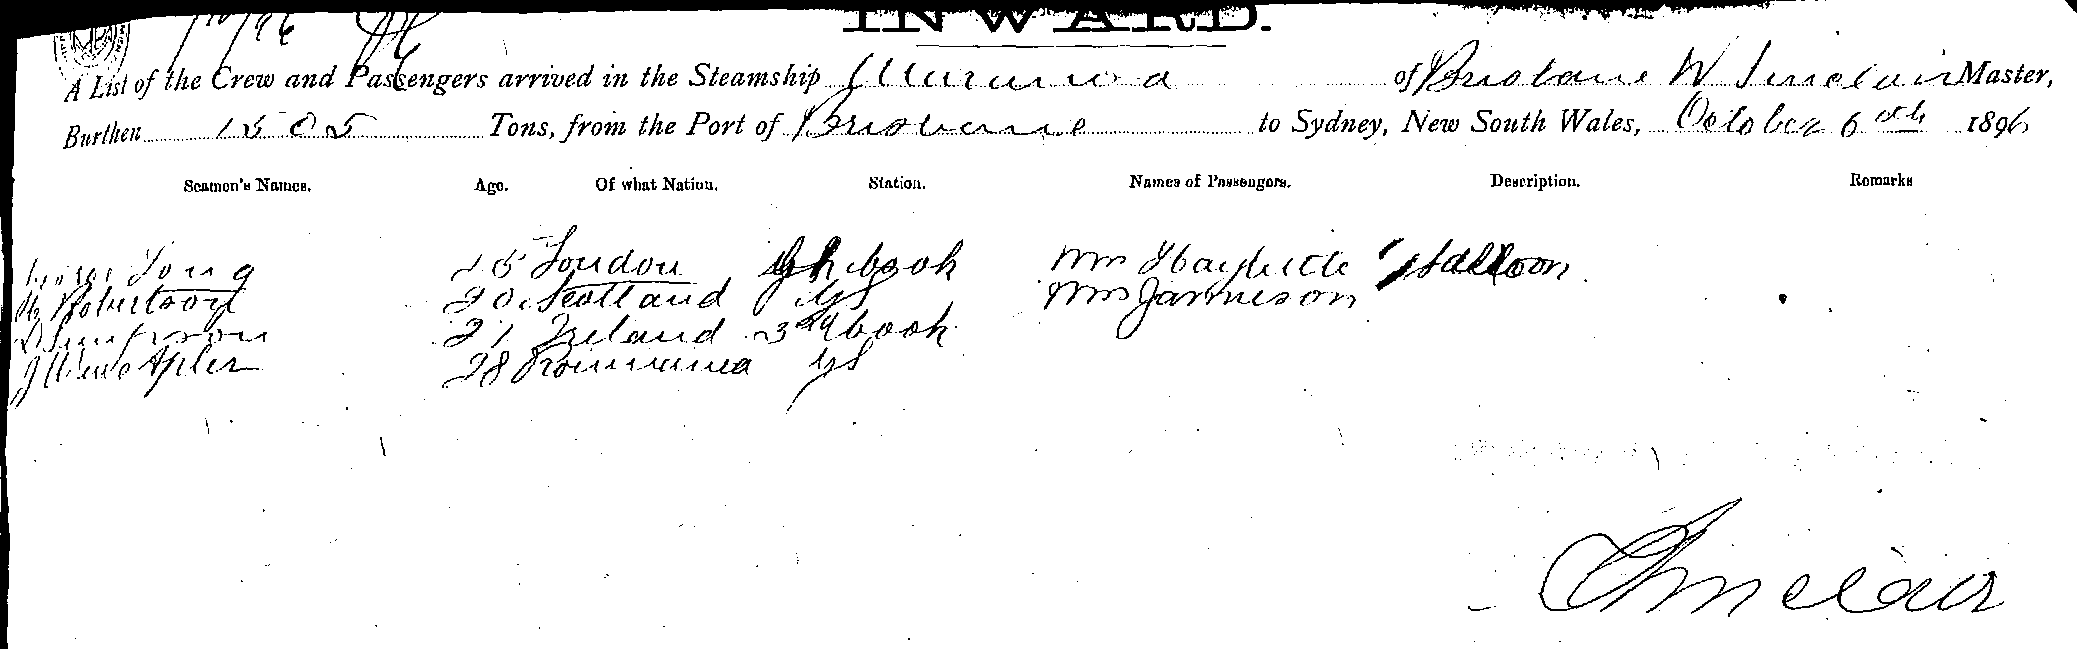 INWARD.
A List of the Crew and Passengers arrived in the Steamship Maranoa of Brisbane W Sinclair Master,
Burthen 1505 Tons, from the Port of Brisbane to Sydney, New South Wales, October 6th 1896
Seamen's Names. Age. Of what Nation. Station. Names of Passengers. Description. Remarks
George Long 25 London cook Mrs Saloon
Robertson 20 Scotland GS Mrs Jamieson
21 Ireland 3rd cook
28 GS
Sinclair